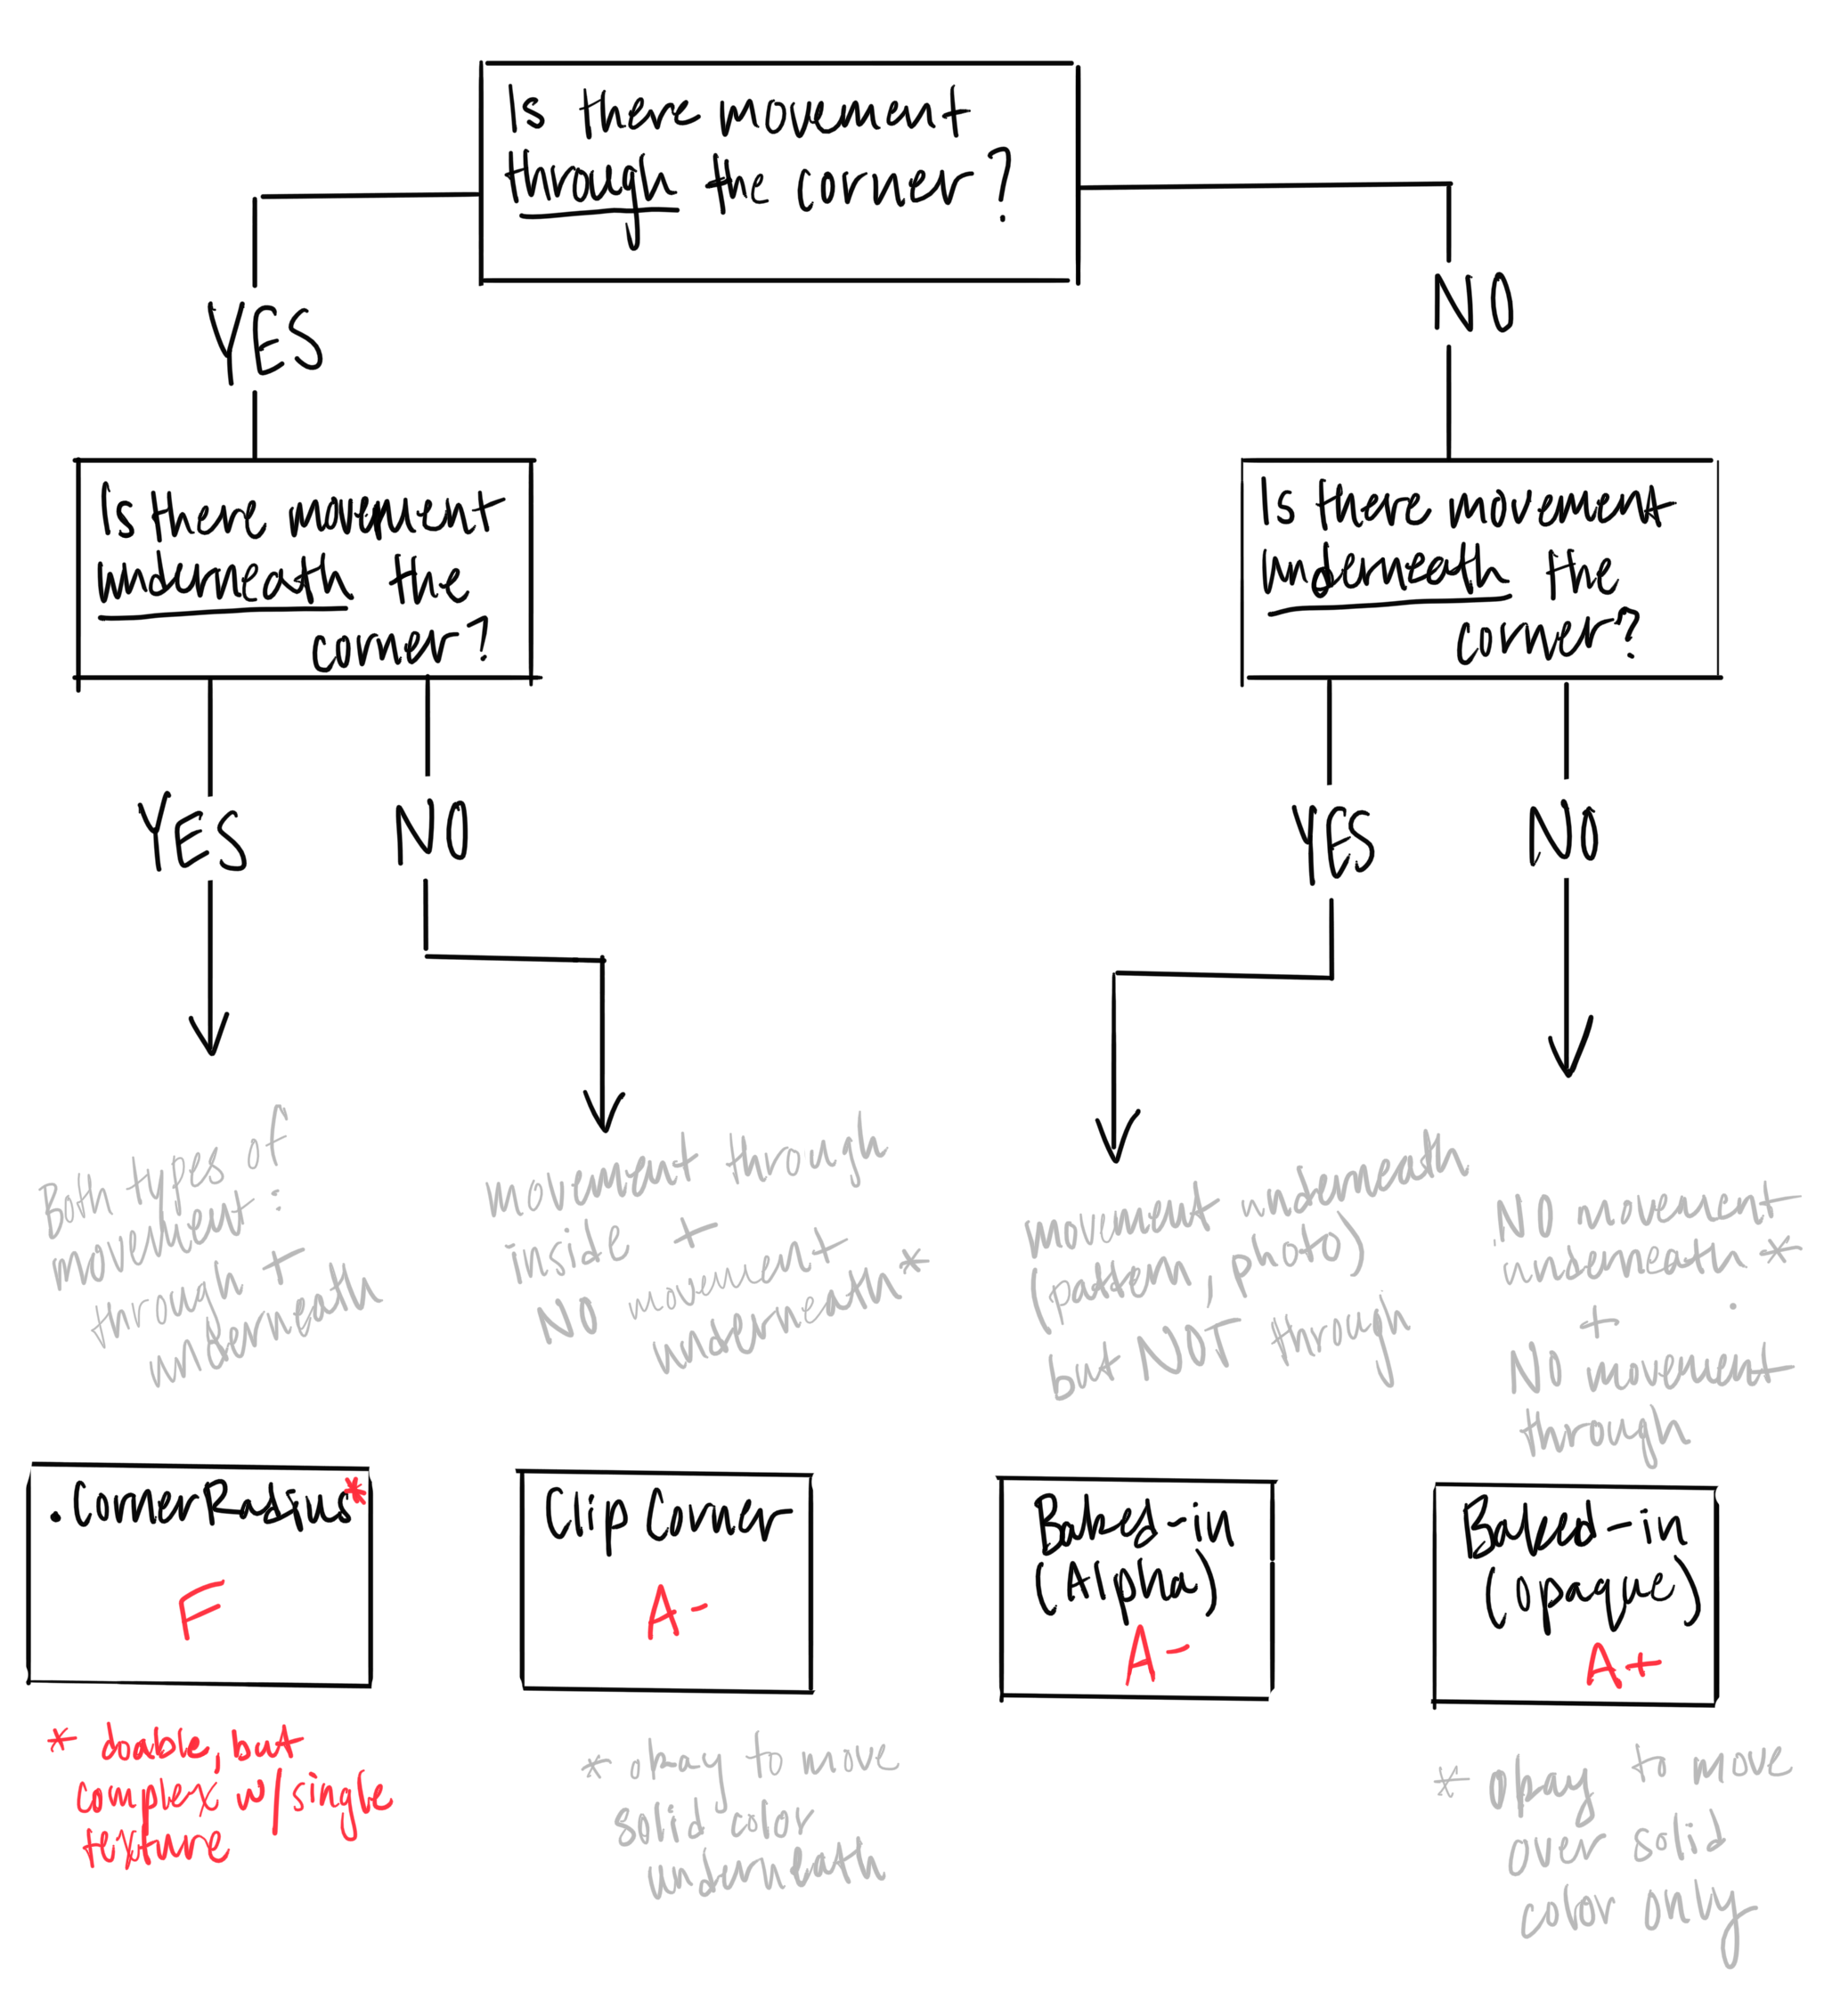 Is there movement
through the corner?
YES
NO
Is there movement
underneath the
corner?
Is there movement
underneath the
corner?
YES
NO
YES
NO
Both types of
movement:
through +
underneath
movement through
inside +
NO movement
underneath *
movement underneath
(pattern, photo)
but NOT through
NO movement
underneath *
+
NO movement
through
.CornerRadius*
F
Clip Corner
A-
Baked-in
(Alpha)
A-
Baked-in
(opaque)
A+
* doable, but
complex w/ single
texture
* okay to move
solid color
underneath
* okay to move
over solid
color only